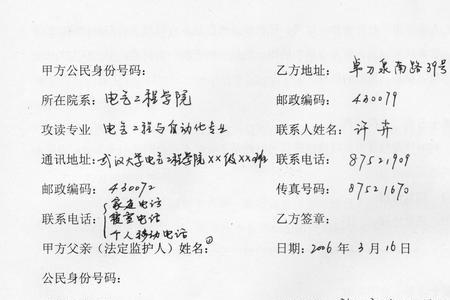 甲方公民身份号码: 乙方地址: 卓刀泉南路39号
所在院系: 电气工程学院 邮政编码: 430079
攻读专业 电气工程与自动化专业 联系人姓名: 许卉
通讯地址: 武汉大学电气工程学院XX级XX班 联系电话: 87521909
邮政编码: 430072 传真号码: 87521670
家庭电话
联系电话: 寝室电话 乙方签章:
个人移动电话
甲方父亲(法定监护人)姓名:① 日期: 2006年3月16日
公民身份号码: